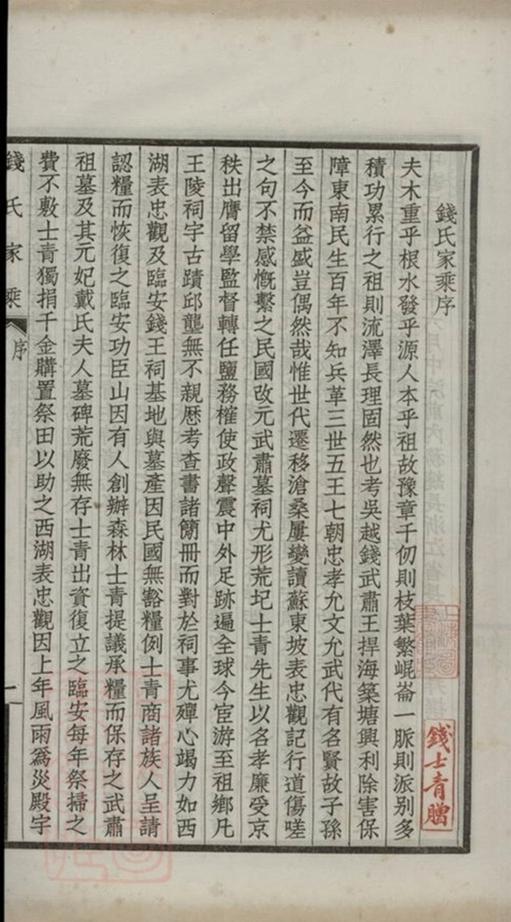 錢氏家乘序
夫木重乎根水發乎源人本乎祖故豫章千仞則枝葉繁崐崙一脈則派别多
積功累行之祖則流澤長理固然也考吳越錢武肅王捍海築塘興利除害保
障東南民生百年不知兵革三世五王七朝忠孝允文允武代有名賢故子孫
至今而益盛豈偶然哉惟世代遷移滄桑屢變讀蘇東坡表忠觀記行道傷嗟
之句不禁感慨繫之民國改元武肅墓祠尤形荒圮士青先生以名孝廉受京
秩出膺留學監督轉任鹽務榷使政聲震中外足跡遍全球今宦游至祖鄉凡
王陵祠宇古蹟邱壟無不親歷考查書諸簡冊而對於祠事尤殫心竭力如西
湖表忠觀及臨安錢王祠基地與墓產因民國無豁糧例士青商諸族人呈請
認糧而恢復之臨安功臣山因有人創辦森林士青提議承糧而保存之武肅
祖墓及其元妃戴氏夫人墓碑荒廢無存士青出資復立之臨安每年祭掃之
費不敷士青獨捐千金購置祭田以助之西湖表忠觀因上年風雨爲災殿宇
錢氏家乘
序
一
錢士青贈